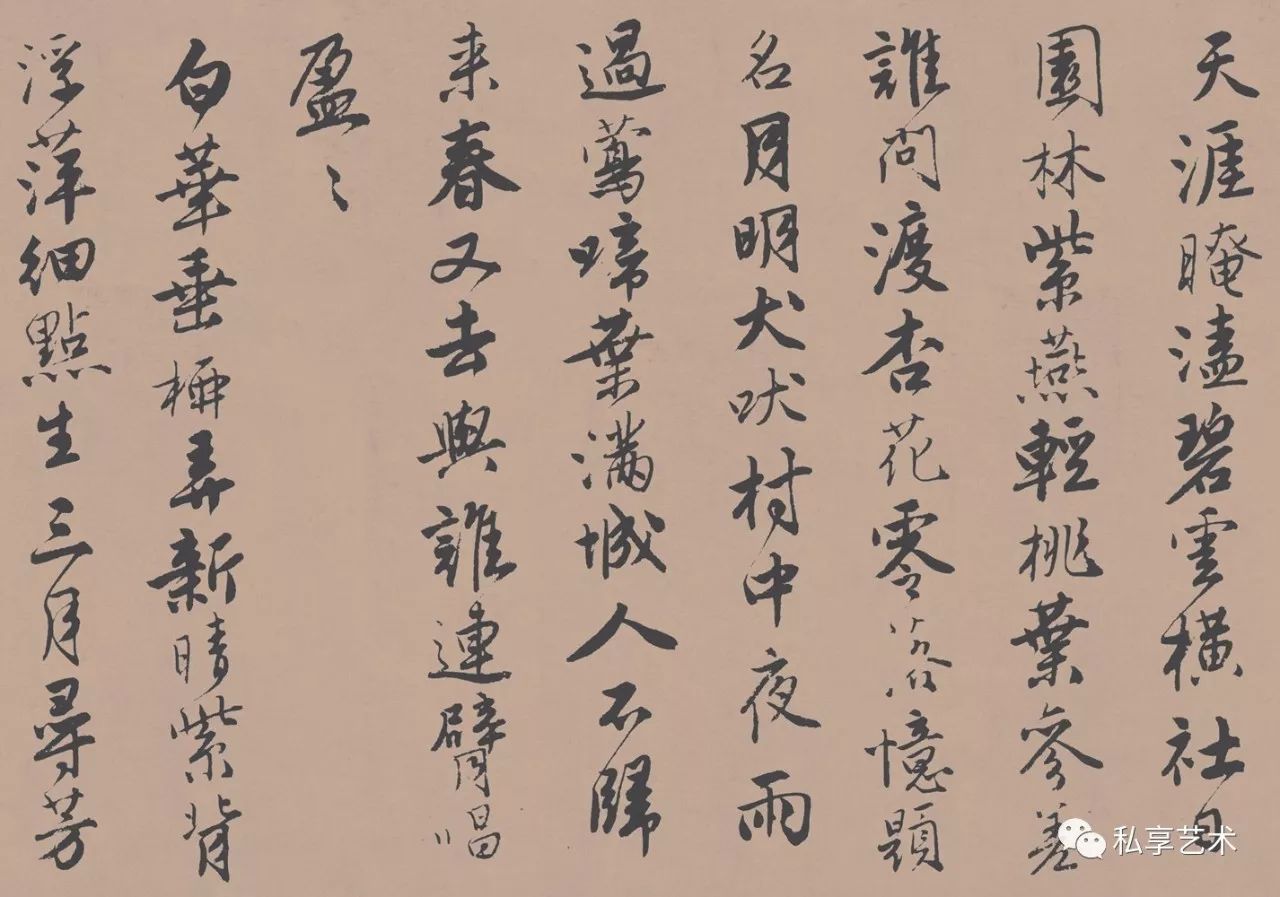 天涯晻溘碧雲橫社日
園林紫燕輕桃葉參差
誰問渡杏花零落憶題
名月明犬吠村中夜雨
過鶯啼葉滿城人不歸
来春又去與誰連臂唱
盈〻
白華垂柳弄新晴紫背
浮萍細點生三月尋芳
私享艺术